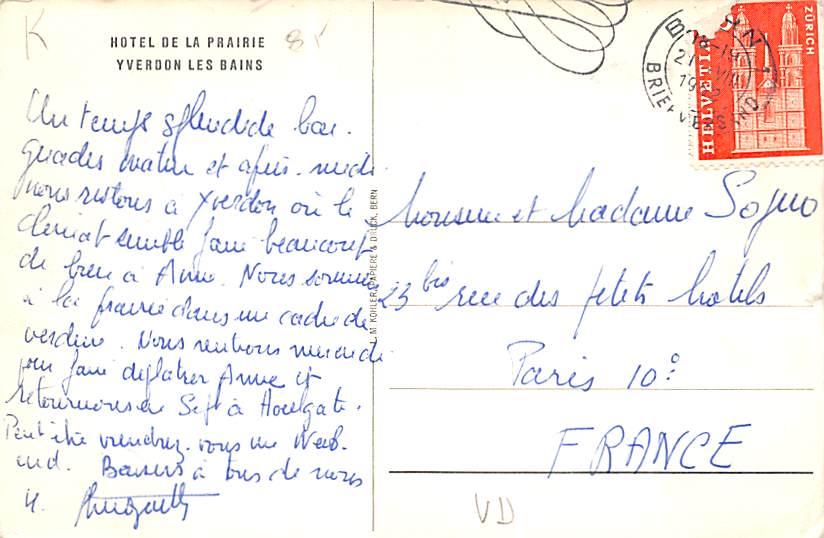 K
HOTEL DE LA PRAIRIE
YVERDON LES BAINS
Un temps splendide
matin et après-midi
nous restons à Yverdon où le
climat semble faire beaucoup
de bien à Anne. Nous sommes
à la prairie dans un cadre de
verdure. Nous rentrons mercredi
pour faire déplâtrer Anne et
retournons en Sept à Houlgate.
Peut être viendrez-vous un Week-
end. Baisers à tous de nous
4. Huguette
L. M. KOHLER, PAPIERE & DRUCK, BERN
Monsieur et Madame Sogno
23 bis rue des petits hotels
Paris 10°
FRANCE
VD
HELVETIA
ZÜRICH
BERN 1
21. VIII
19
BRIEFVERSAND